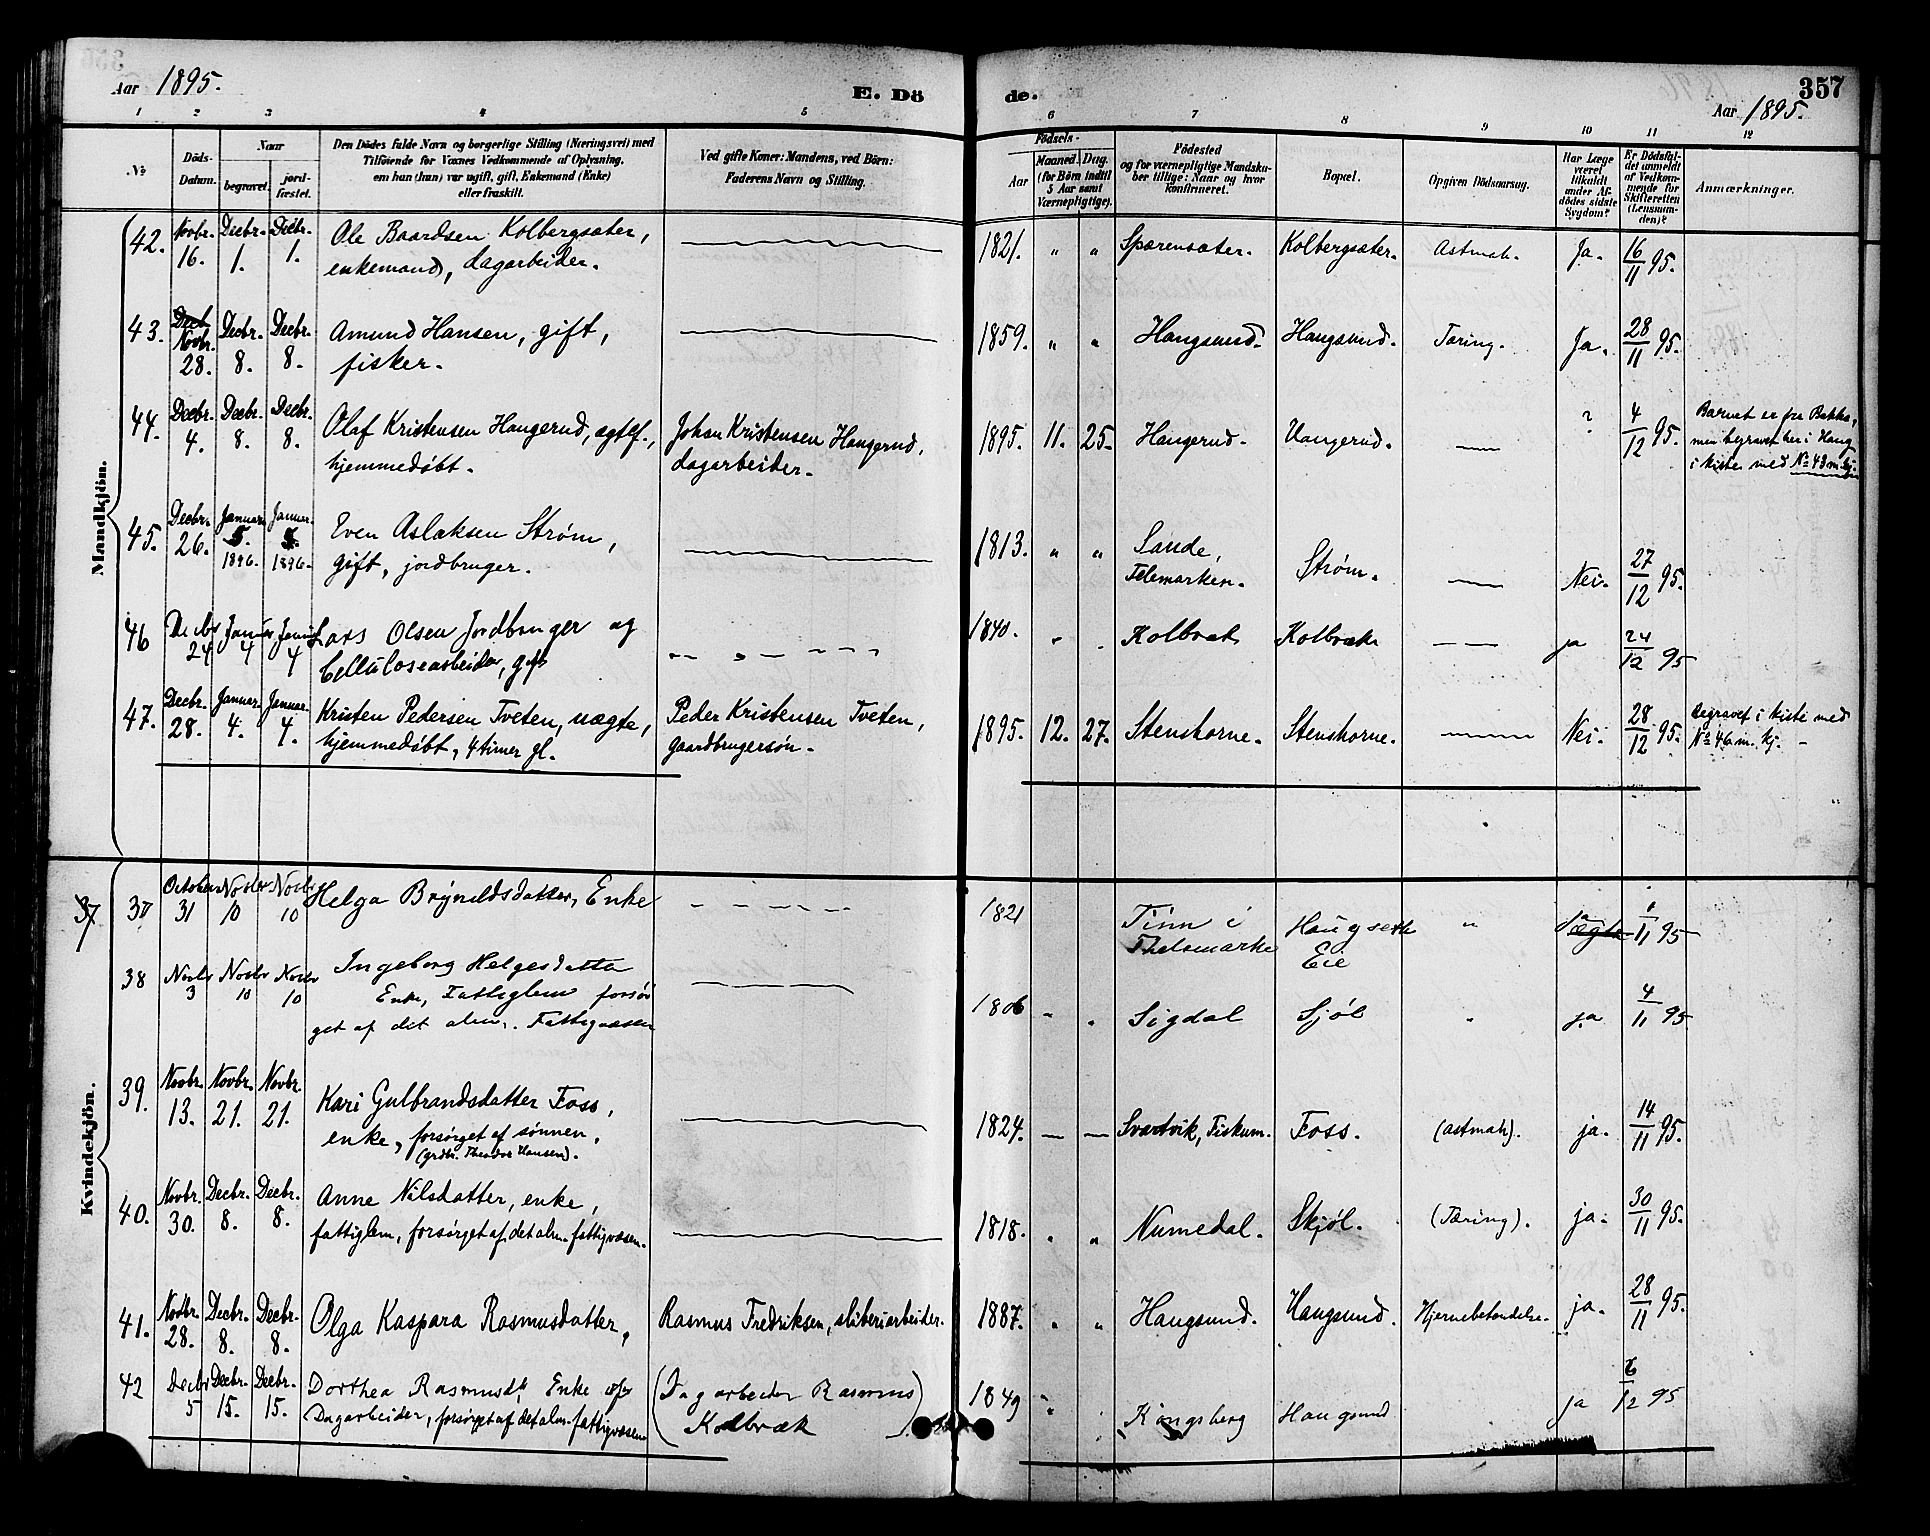 Aar 1895.
E. Dö
de.
357
Aar 1895.
1 2 3 4 5 6 7 8 9 10 11 12
No.
Döds-Datum.
Naar
begravet.
jord-fæstet.
Den Dödes fulde Navn og borgerlige Stilling (Næringsvei) med
Tilföiende for Voxnes Vedkommende af Oplysning,
om hun (han) var ugift, gift, Enkemand (Enke)
eller fraskilt.
Ved gifte Koner: Mandens, ved Börn:
Faderens Navn og Stilling.
Födsels-
Aar
Maaned. Dag.
(for Börn indtil
5 Aar samt
Værnepligtige).
Födested
og for værnepligtige Mandska-
ber tillige: Naar og hvor
konfirmeret.
Bopæl.
Opgiven Dödsaarsag.
Har Læge
været
tilkaldt
under Af-
dödes sidste
Sygdom?
Er Dödsfal-
det anmeldt
af Vedkom-
mende for
Skifteretten
(Lensman-
den)?
Anmærkninger.
Mandkjön.
42. Novbr. 16. Decbr. 1. Decbr. 1. Ole Baardsen Kolbergsæter,
enkemand, dagarbeider.
1821. " " Spærensæter. Kolbergsæter. Astmah. Ja. 16/11 95.
43. Decb Novbr. 28. Decbr. 8. Decbr. 8. Amund Hansen, gift,
fisker.
1859. " " Haugsund. Haugsund. Tæring. Ja. 28/11 95.
44. Decbr. 4. Decbr. 8. Decbr. 8. Olaf Kristensen Haugerud, ægtef.,
hjemmedøbt.
Johan Kristensen Haugerud,
dagarbeider.
1895. 11. 25. Haugerud. Haugerud. — ? 4/12 95.
Barnet er fra Bakke,
men begravet her i Haug
i kiste med No 43 m. kj.
45. Decbr. 26. Januar 5. 1896. Januar 5. 1896. Even Aslaksen Strøm,
gift, jordbruger.
1813. " " Sande,
Telemarken. Strøm. — Nei. 27/12 95.
46 Decbr 24 Januar 4 Januar 4 Lars Olsen Jordbruger og
Cellulosearbeider, gift
1840. " . Kolbræk Kolbræk — ja 24/12 95
47. Decbr. 28. Januar. 4. Januar. 4. Kristen Pedersen Tveten, uægte,
hjemmedøbt, 4 timer gl.
Peder Kristensen Tveten,
gaardbrugersøn.
1895. 12. 27. Stenshorne. Stenshorne. — Nei. 28/12 95.
Begravet i kiste med
No 46 m. kj.
Kvindekjön.
37 37 October 31 Novbr 10 Novbr 10 Helga Brynildsdatter, Enke
1821 Tinn i
Thelemarke Haugseth
Eie " 1/11 95
38 Novbr 3 Novbr 10 Novbr 10 Ingeborg Helgesdatter
Enke, Fattiglem forsør
get af det alm. Fattigvæsen
1806 Sigdal Sjøl " ja 4/11 95
39. Novbr. 13. Novbr. 21. Novbr. 21. Kari Gulbrandsdatter Foss,
enke, forsørget af sønnen,
(grdbr. Theodor Hansen).
1824. — — Svartvik, Fiskum. Foss. (astmah). ja. 14/11 95.
40. Novbr. 30. Decbr. 8. Decbr. 8. Anne Nilsdatter, enke,
fattiglem, forsørget af det alm. fattigvæsen.
1818. " " Numedal. Skjøl. (Tæring). ja. 30/11 95.
41. Novbr. 28. Decbr. 8. Decbr. 8. Olga Kaspara Rasmusdatter,
Rasmus Fredriksen, sliberiarbeider.
1887. " " Haugsund. Haugsund. Hjernebetændelse. ja. 28/11 95.
42 Decbr 5 Decbr. 15. Decbr. 15. Dorthea Rasmusdt. Enke efter
Dagarbeider, forsørget af det alm. fattigvæsen
(Dagarbeider Rasmus
Kolbræk)
1849 " Kongsberg Haugsund ja 6/12 95